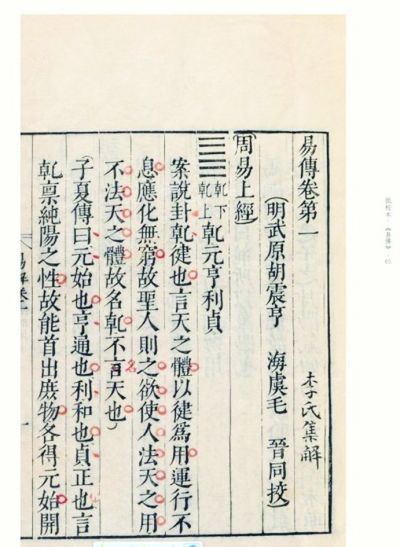 易傳卷第一
李氏集解
(明武原胡震亨 海虞毛 晉同挍)
(周易上經)
乾下
乾上 乾元亨利貞
案說卦乾健也言天之體以健爲用運行不
息應化無窮故聖人則之欲使人法天之用
不法天之體故名乾不言天也)
(子夏傳曰元始也亨通也利和也貞正也言
乾稟純陽之性故能首出庶物各得元始開
易解卷一
一